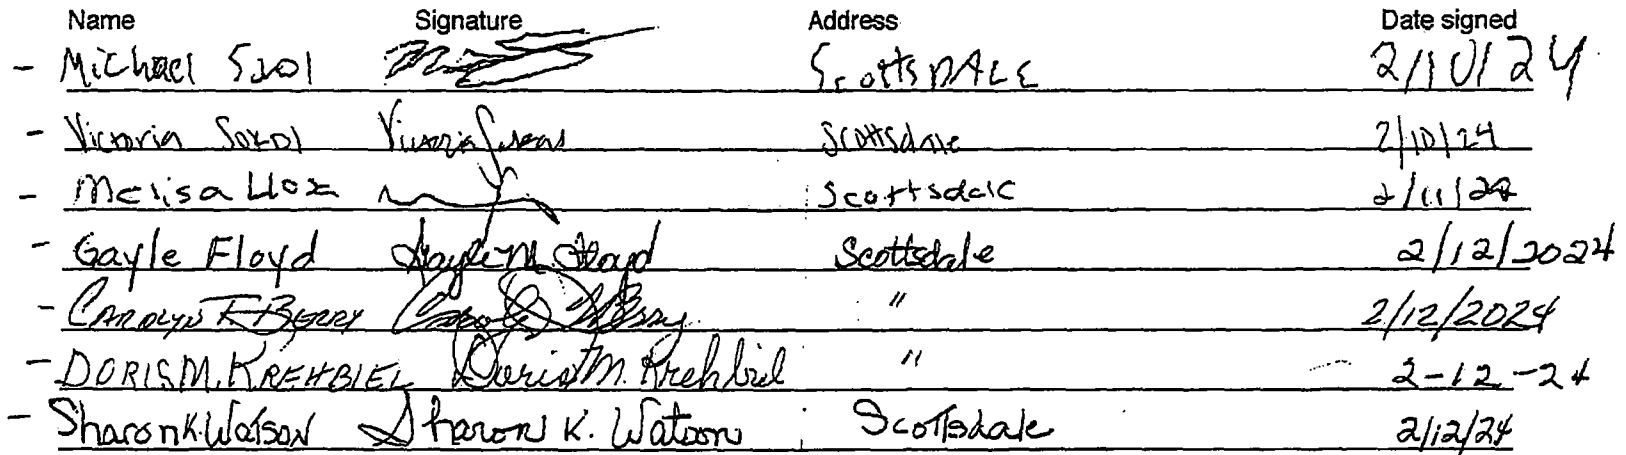 Name Signature Address Date signed
- Michael Sokol ScottsDALE 2/10/24
- Victoria Sokol Scottsdale 2/10/24
- Melisa Scottsdale 2/11/24
- Gayle Floyd Gayle M. Floyd Scottsdale 2/12/2024
- CAROLYN F BERRY " 2/12/2024
- DORIS M. KREHBIEL Doris M. Krehbiel " 2-12-24
- Sharon K. Watson Sharon K. Watson Scottsdale 2/12/24